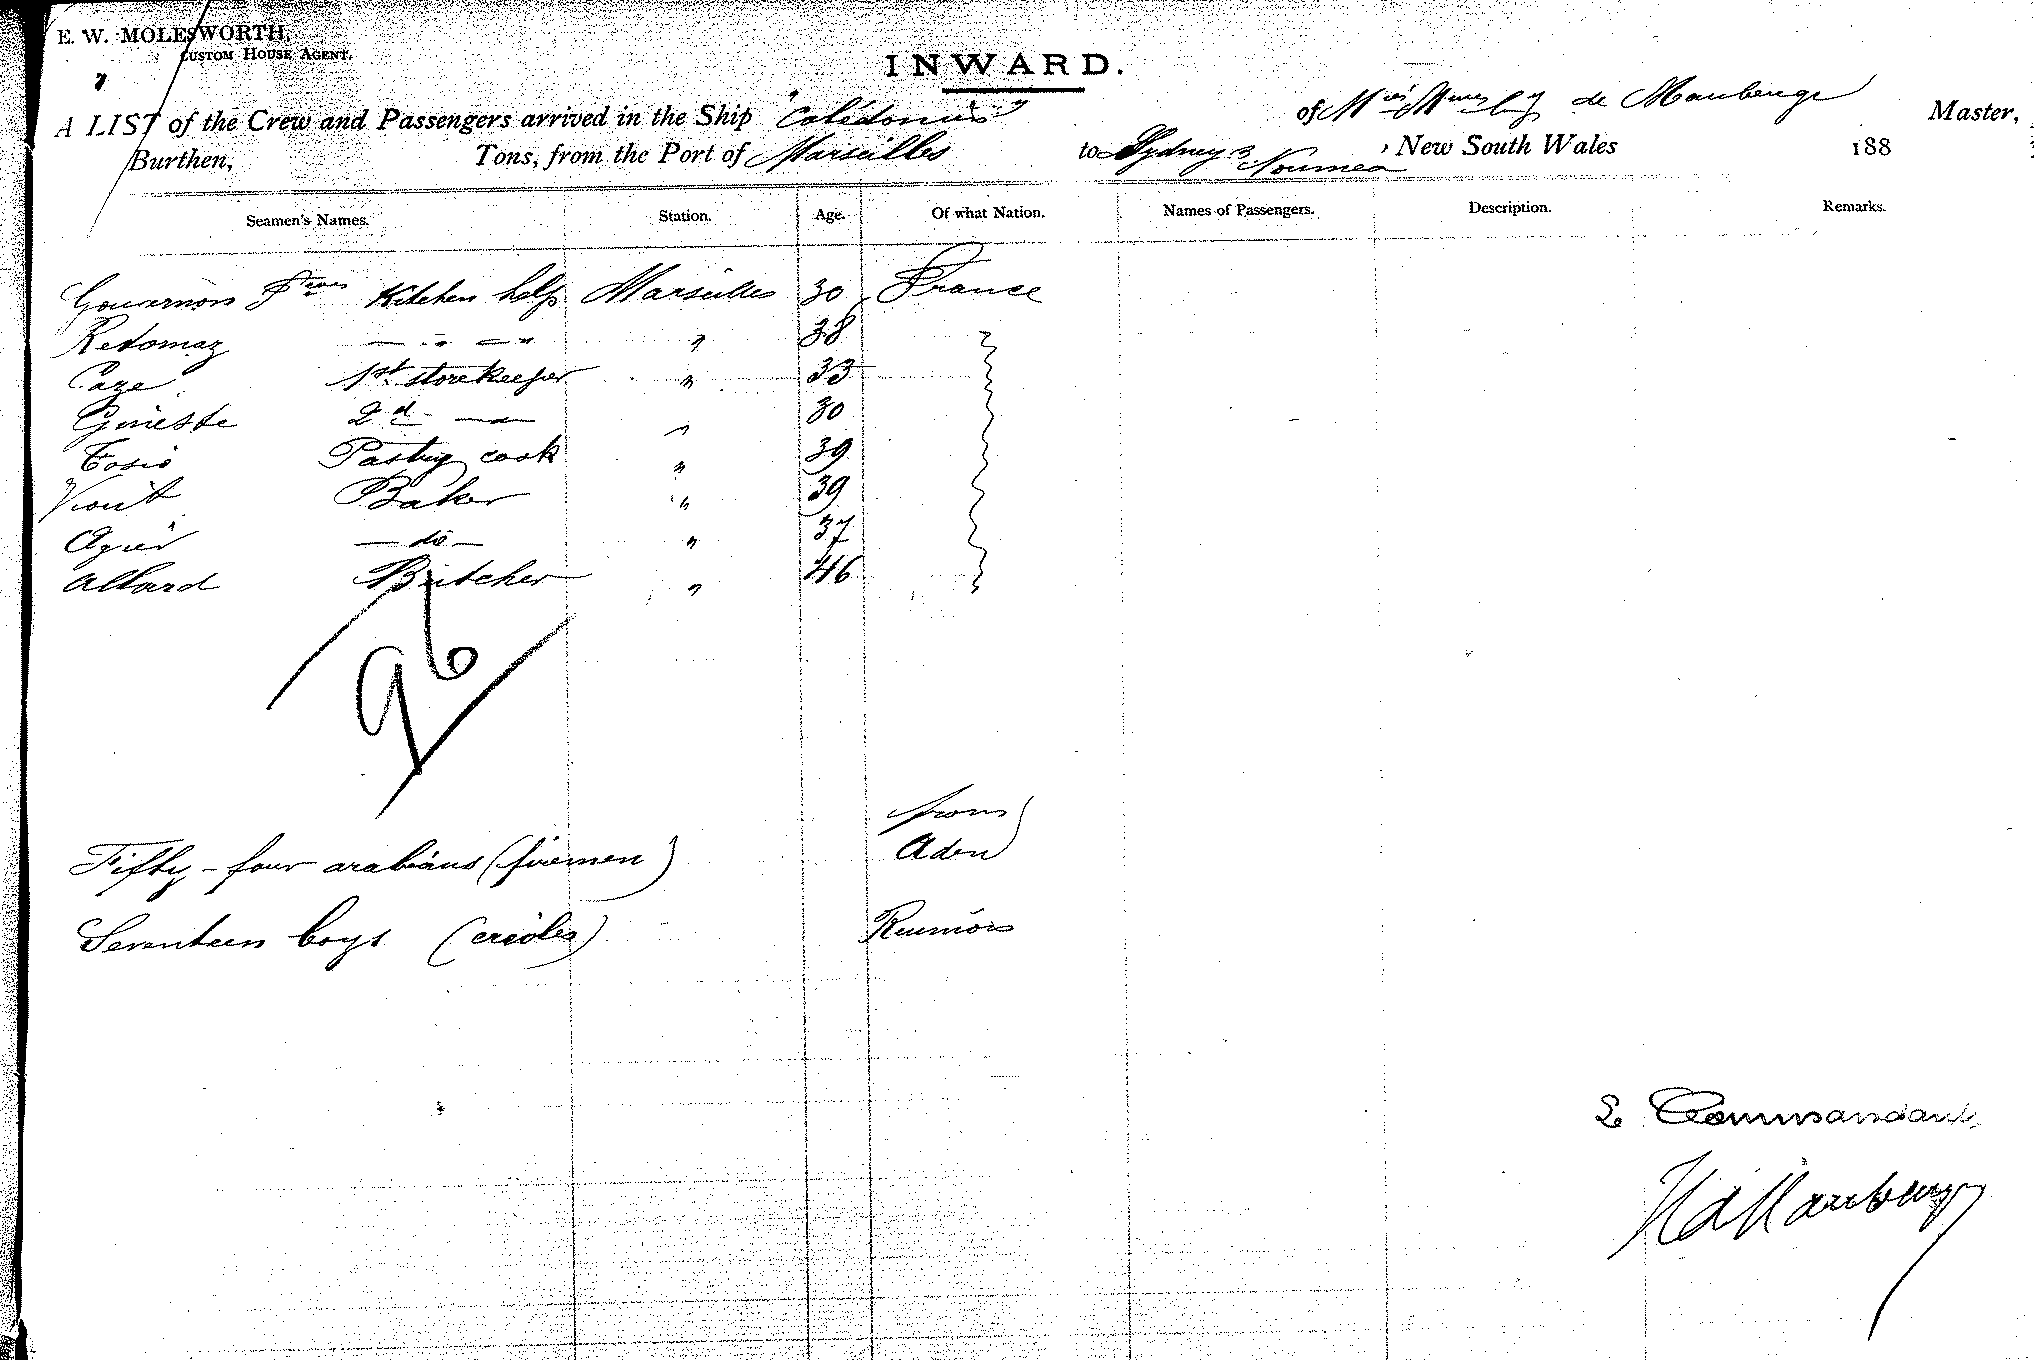 E. W. MOLESWORTH,
CUSTOM HOUSE AGENT.
INWARD.
A LIST of the Crew and Passengers arrived in the Ship "Calédonien" of de Maubeuge Master,
Burthen, Tons, from the Port of Marseilles to Sydney & Noumea, New South Wales 188
Seamen's Names. Station. Age. Of what Nation. Names of Passengers. Description. Remarks.
Kitchen help Marseilles 30 France
Retornaz — " — " " 38
Caze 1st storekeeper " 33
Gineste 2d — " 30
Tosio Pastry cook " 39
Viout Baker " 39
— do — " 37
Allard Butcher " 46
96
from
Fifty-four arabians (firemen) Aden
Seventeen boys (créoles) Reunion
Le Commandant
HdMaubeuge